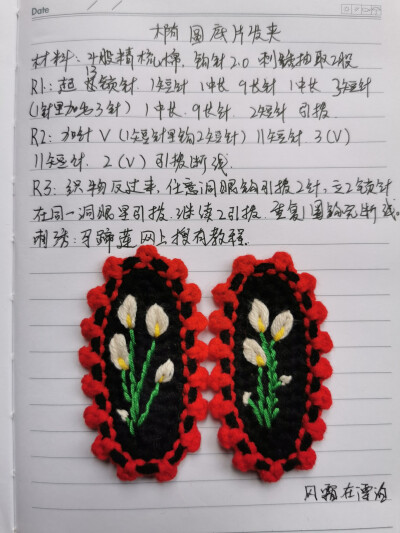 Date
椭圆底片发夹
材料:4股精梳棉,钩针2.0 刺绣抽取2股
R1:起13锁针.1短针 1中长 9长针 1中长 3短针
(1针里加出3针) 1中长.9长针.2短针 引拨
R2:加针V (1短针里钩2短针) 11短针.3(V)
11短针.2(V) 引拨断线
R3:织物反过来,任意洞眼钩引拨2针,立2锁针
在同一洞眼里引拨.继续2引拨.重复1圈钩完断线。
刺绣:马蹄莲网上搜有教程.
风霜在漂泊